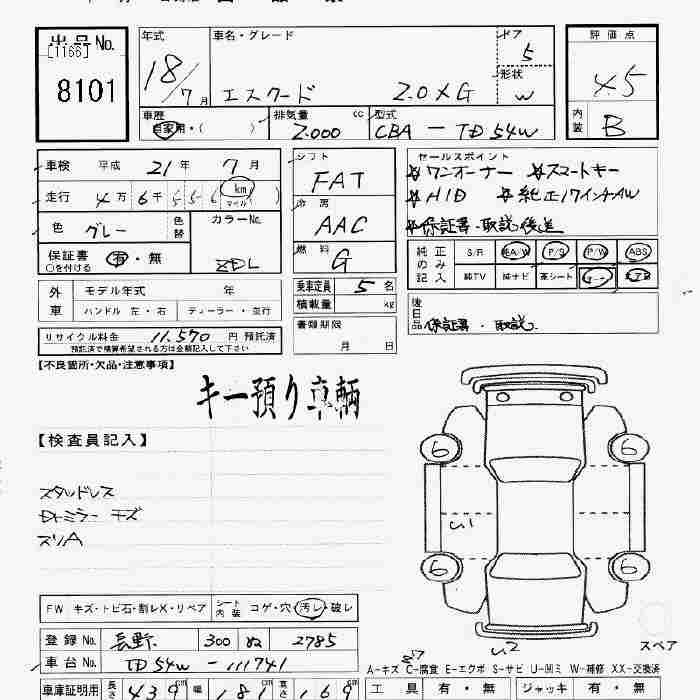 出品No.
[1166]
8101
年式
18/7月
車名・グレード
エスクード 2.0XG
ドア
5
形状
W
評価点
4.5
内装
B
車歴
自家用・( )
排気量 cc
2.000
型式
CBA - TD54W
車検 平成 21年 7月
走行 4万6千556 km マイル( )
色 グレー
色替
カラーNo.
ZDL
保証書 有・無
○を付ける
シフト
FAT
冷房
AAC
燃料
G
セールスポイント
☆ワンオーナー ☆スマートキー
☆HID ☆純正17インチAW
☆保証書・取説後送
純正のみ記入
S/R 純A/W P/S P/W ABS
純TV 純ナビ 革シート
外車
モデル年式 年
ハンドル 左・右 ディーラー・並行
乗車定員 5名
積載量 kg
書類期限
月 日
後日品
保証書・取説
リサイクル料金 11.570 円 預託済
預託済で精算希望される方は金額記入して下さい
【不良箇所・欠品・注意事項】
キー預り車輌
【検査員記入】
スタッドレス
Rtミラー キズ
スリA
6 6
6 6
い1
い2
FW キズ・トビ石・割レX・リペア
シート内装 コゲ・穴・汚レ・破レ
登録No. 長野 300 ぬ 2785
車台No. TD54W - 111741
スペア
A-キズ C-腐食 E-エクボ S-サビ U-凹ミ W-補修 XX-交換済
車庫証明用 長さ 439 幅 181 高さ 169
工具 有・無 ジャッキ 有・無